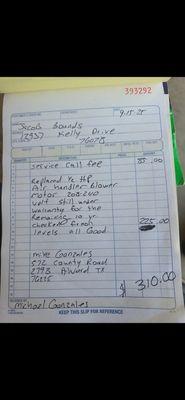 393292
9-15-25
Jacob Bounds
Kelly Drive
76078
service call fee 85.00
Replaced ¼ HP
Air handler Blower
motor 208-240
volt still under
warranty for the
Remaining 10 yr
checked freon 225.00
levels all Good
Mike Gonzales
592 County Road
2798 Alvord TX
76225
$310.00
Michael Gonzales
KEEP THIS SLIP FOR REFERENCE